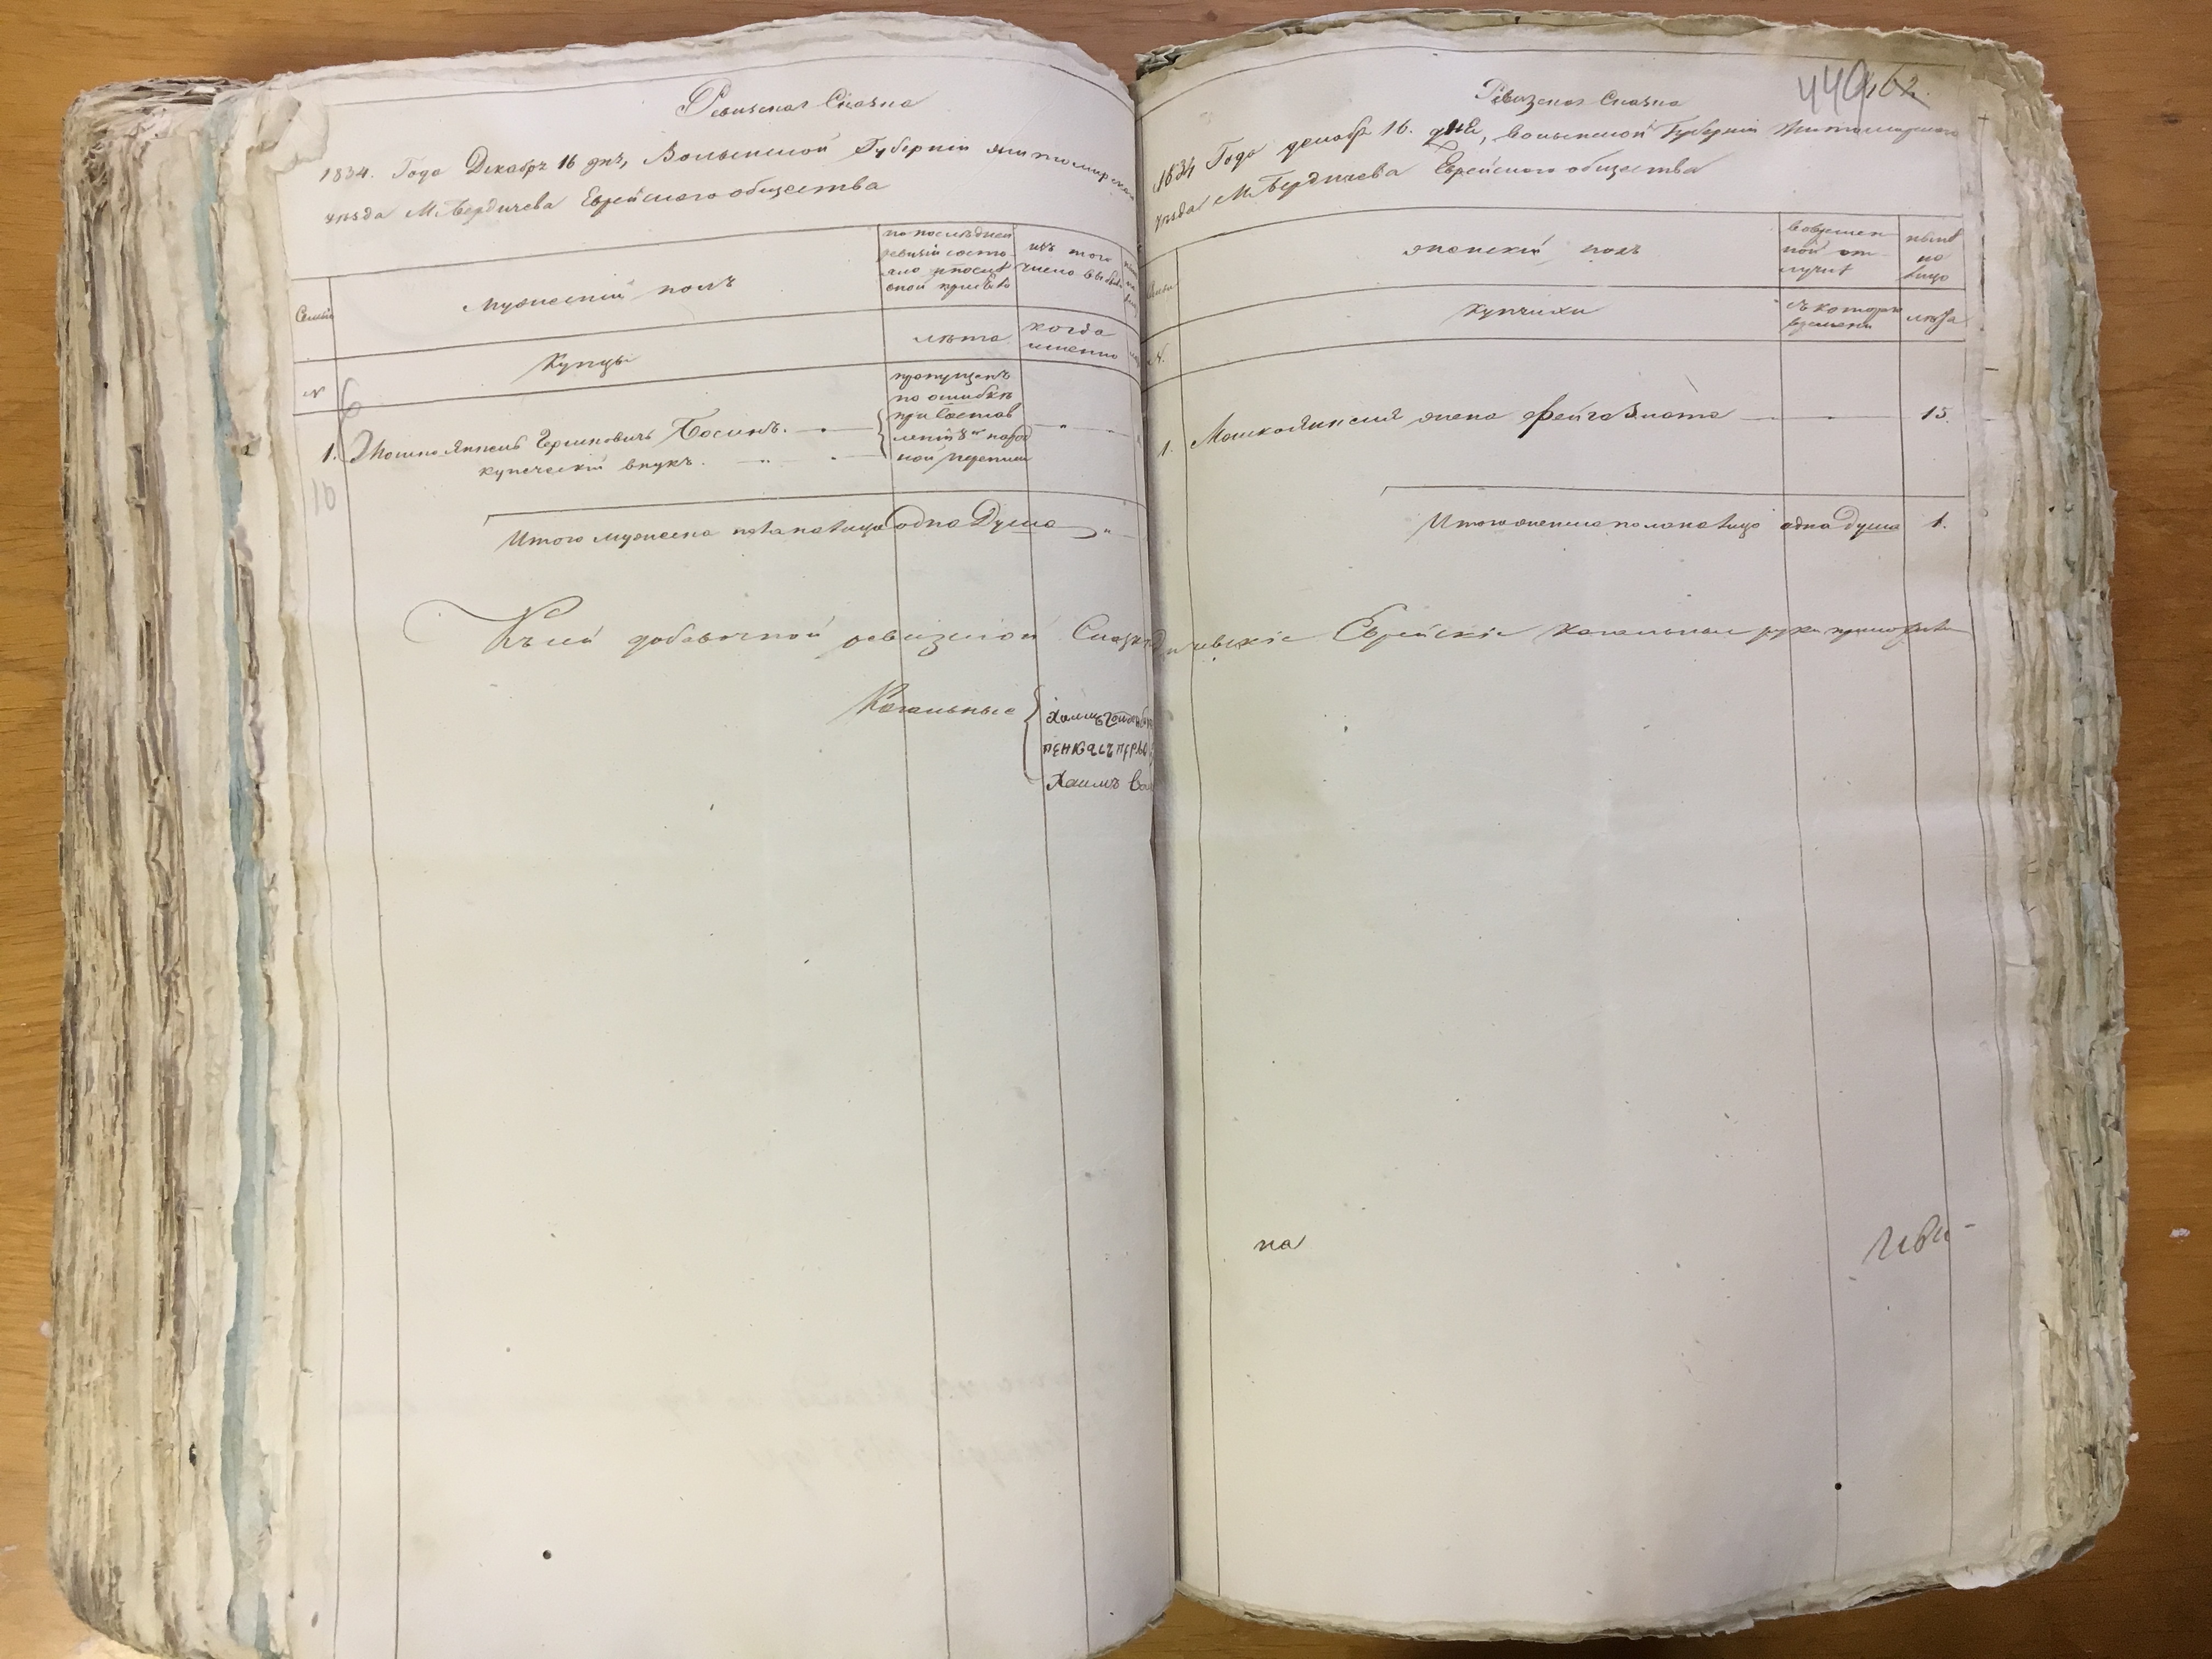 Ревизская Сказка
1834. Года Декабря 16 дня, Волынской Губернии Житомирскаго
уезда М. Бердичева Еврейского общества
Семьи
Мужеский полъ
по последней
ревизии состо
яло и после
оной прибыло
изъ того
числа выбыло
Купцы
лета
когда
именно
N
6
пропущенъ
по ошибке
при Состав
лении 8й народ
ной переписи
1. Мошко Янкель Гершковичъ
купеческий внукъ.
10
Итого мужеска пола на лицо одна Душа
Къ сей добавочной ревизской Сказке
Кагальные
Хаимъ
Хаимъ
449
162
Ревизская Сказка
1834 Года декабря 16. дня, Волынской Губернии Житомирскаго
уезда М. Бердичева Еврейского общества
Семьи
женский полъ
во времен
ной от
лучке
ныне
на
лицо
Купчихи
съ котораго
времени
лета
N.
1. Мошка Янкеля жена Фейга Злата 15.
Итого женска пола на лицо одна душа 1.
дичевские Еврейские Кагальные руки приложили
на